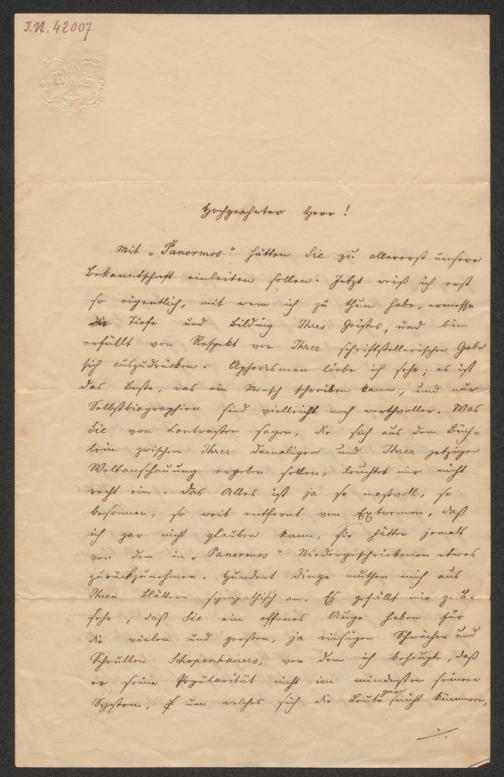 I.N. 42007
Hochgeehrter Herr!
Mit „Panormos“ hätten Sie zu allererst unsere
Bekanntschaft einleiten sollen. Jetzt weiß ich erst
so eigentlich, mit wem ich zu thun habe, ermesse
die Tiefe und Bildung Ihres Geistes, und bin
erfüllt von Respekt vor Ihrer schriftstellerischen Gabe
sich auszudrücken. Aphorismen liebe ich sehr; es ist
das Beste, was ein Mensch schreiben kann, und nur
Selbstbiographien sind vielleicht noch werthvoller. Was
Sie von Contrasten sagen, die sich aus dem Büch-
lein zwischen Ihrer damaligen und Ihrer jetzigen
Weltanschauung ergeben sollen, leuchtet mir nicht
recht ein. Das Alles ist ja so maßvoll, so
besonnen, so weit entfernt von Extremen, daß
ich gar nicht glauben kann, Sie hätten jemals
von dem in „Panormos“ Niedergeschriebenen etwas
zurückzunehmen. Hundert Dinge muthen mich aus
Ihren Blättern sympathisch an. Es gefällt mir z. B.
sehr, daß Sie ein offenes Auge haben für
die vielen und großen, ja riesigen Schwächen und
Schrullen Schopenhauers, von dem ich behaupte, daß
er seine Popularität nicht im mindesten seinem
System, um welches sich die Leute gar nicht kümmern,